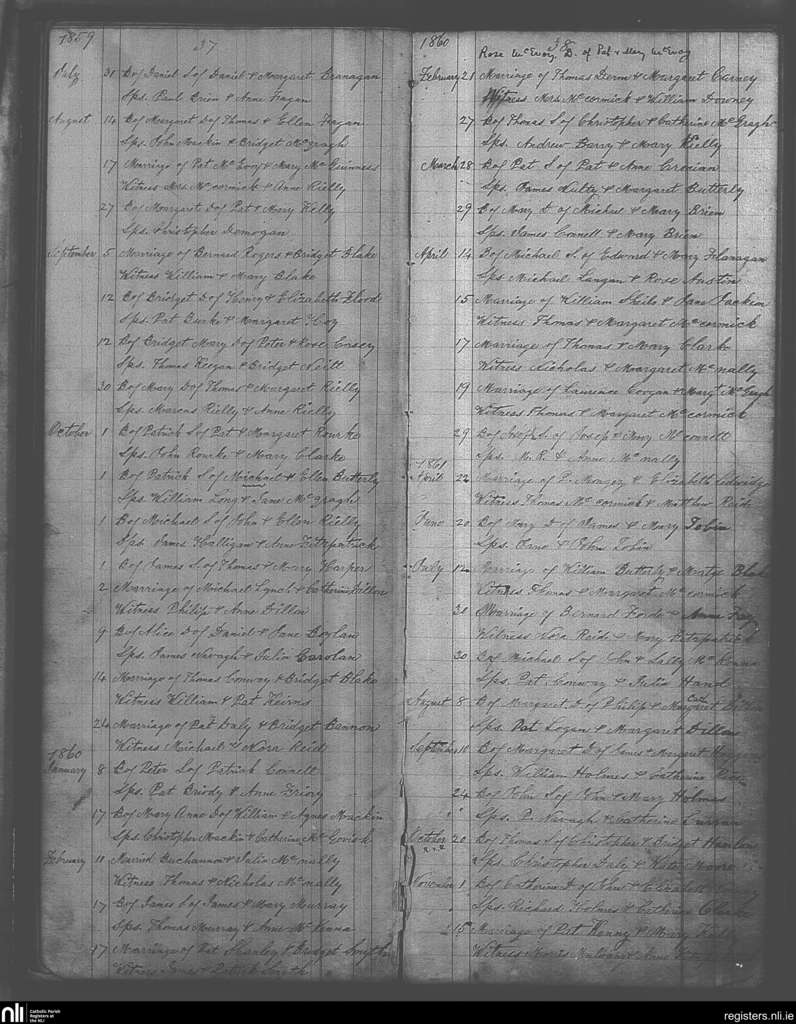 1859
37
July 31 B of Daniel S of Daniel & Margaret Granagan
Sps. Paul Brien & Anne Fagan
August 14 B of Margaret D of Thomas & Ellen Fagan
Sps. John Mackin & Bridget McGragh
17 Marriage of Pat McEvoy & Mary McGuinness
Witness Mrs McCormick & Anne Rielly
27 B of Margaret D of Pat & Mary Kelly
Sps. Christopher Domogan
September 5 Marriage of Bernard Rogers & Bridget Blake
Witness William & Mary Blake
12 B of Bridget D of Henry & Elizabeth Flood
Sps. Pat Burke & Margaret Hoy
12 B of Bridget Mary D of Peter & Rose
Sps. Thomas Keegan & Bridget
30 B of Mary D of Thomas & Margaret Rielly
Sps. Marcus Rielly & Anne Rielly
October 1 B of Patrick S of Pat & Margaret Rourke
Sps. John Rourke & Mary Clarke
1 B of Patrick S of Michael & Ellen Butterly
Sps. William Long & Jane McGragh
1 B of Michael S of John & Ellen Rielly
Sps. James Halligan & Anne Fitzpatrick
1 B of James S of Thomas & Mary Harper
2 Marriage of Michael Lynch & Catherine Dillon
Witness Philip & Anne Dillon
9 B of Alice D of Daniel & Jane Boylan
Sps. James Navagh & Julia Carolan
14 Marriage of Thomas Conway & Bridget Blake
Witness William & Pat Keirns
24 Marriage of Pat Daly & Bridget Bannon
Witness Michael & Nora Reid
1860
January 8 B of Peter S of Patrick Connell
Sps. Pat Briody & Anne Friary
17 B of Mary Anne D of William & Agnes Mackin
Sps. Christopher Mackin & Catherine
February 11 Married Buchannon & Julia McNally
Witness Thomas & Nicholas McNally
17 B of James S of James & Mary Murray
Sps. Thomas Murray & Anne McKenna
17 Marriage of Pat Shanley & Bridget Smyth
Witness James & Patrick Smyth
1860
38
Rose McEvoy. D. of Pat & Mary McEvoy
February 21 Marriage of Thomas & Margaret Carney
Witness Mrs McCormick & William Downey
27 B of Thomas S of Christopher & Catherine McGragh
Sps. Andrew Barry & Mary Rielly
March 28 B of Pat S of Pat & Anne Cronian
Sps. James Hulty & Margaret Butterly
29 B of Mary D of Michael & Mary Brien
Sps. James Connell & Mary Brien
April 14 B of Michael S. of Edward & Mary Flanagan
Sps. Michael Langan & Rose Austin
15 Marriage of William Sheils & Jane
Witness Thomas & Margaret McCormick
17 Marriage of Thomas & Mary Clarke
Witness Nicholas & Margaret McNally
19 Marriage of Laurence Coogan & Margt McGragh
Witness Thomas & Margaret McCormick
29 B of Joseph S. of Joseph & Mary McConnell
Sps. M. R. & Anne McNally
1861
April 22 Marriage of P. & Elizabeth Ledwidge
Witness Thomas McCormick & Matthew Reid
June 20 B of Mary D of James & Mary Tobin
Sps. Anne & John Tobin
July 12 Marriage of William Butterly & Blake
Witness Thomas & Margaret McCormick
31 Marriage of Bernard Forde & Anne
Witness Nora Reid & Mary Fitzpatrick
30 B of Michael S of John & Sally McKenna
Sps. Pat Conway & Julia Hand
August 8 B of Margaret D of Philip & Margaret Cath Dillon
Sps. Pat Logan & Margaret Dillon
September 10 B of Margaret D of James & Margaret
Sps. William Holmes & Catherine
24 B of John S of John & Mary Holmes
" " Sps. P. Navagh & Catherine
October 20 B of Thomas S of Christopher & Bridget
Sps. Christopher Dale & Kate Moore
November 1 B of Catherine D of & Elizabeth
Sps. Richard Holmes & Catherine Clarke
15 Marriage of Pat Kenny & Mary
Witness Morris & Anne
nli
Catholic Parish
Registers at
the NLI
registers.nli.ie